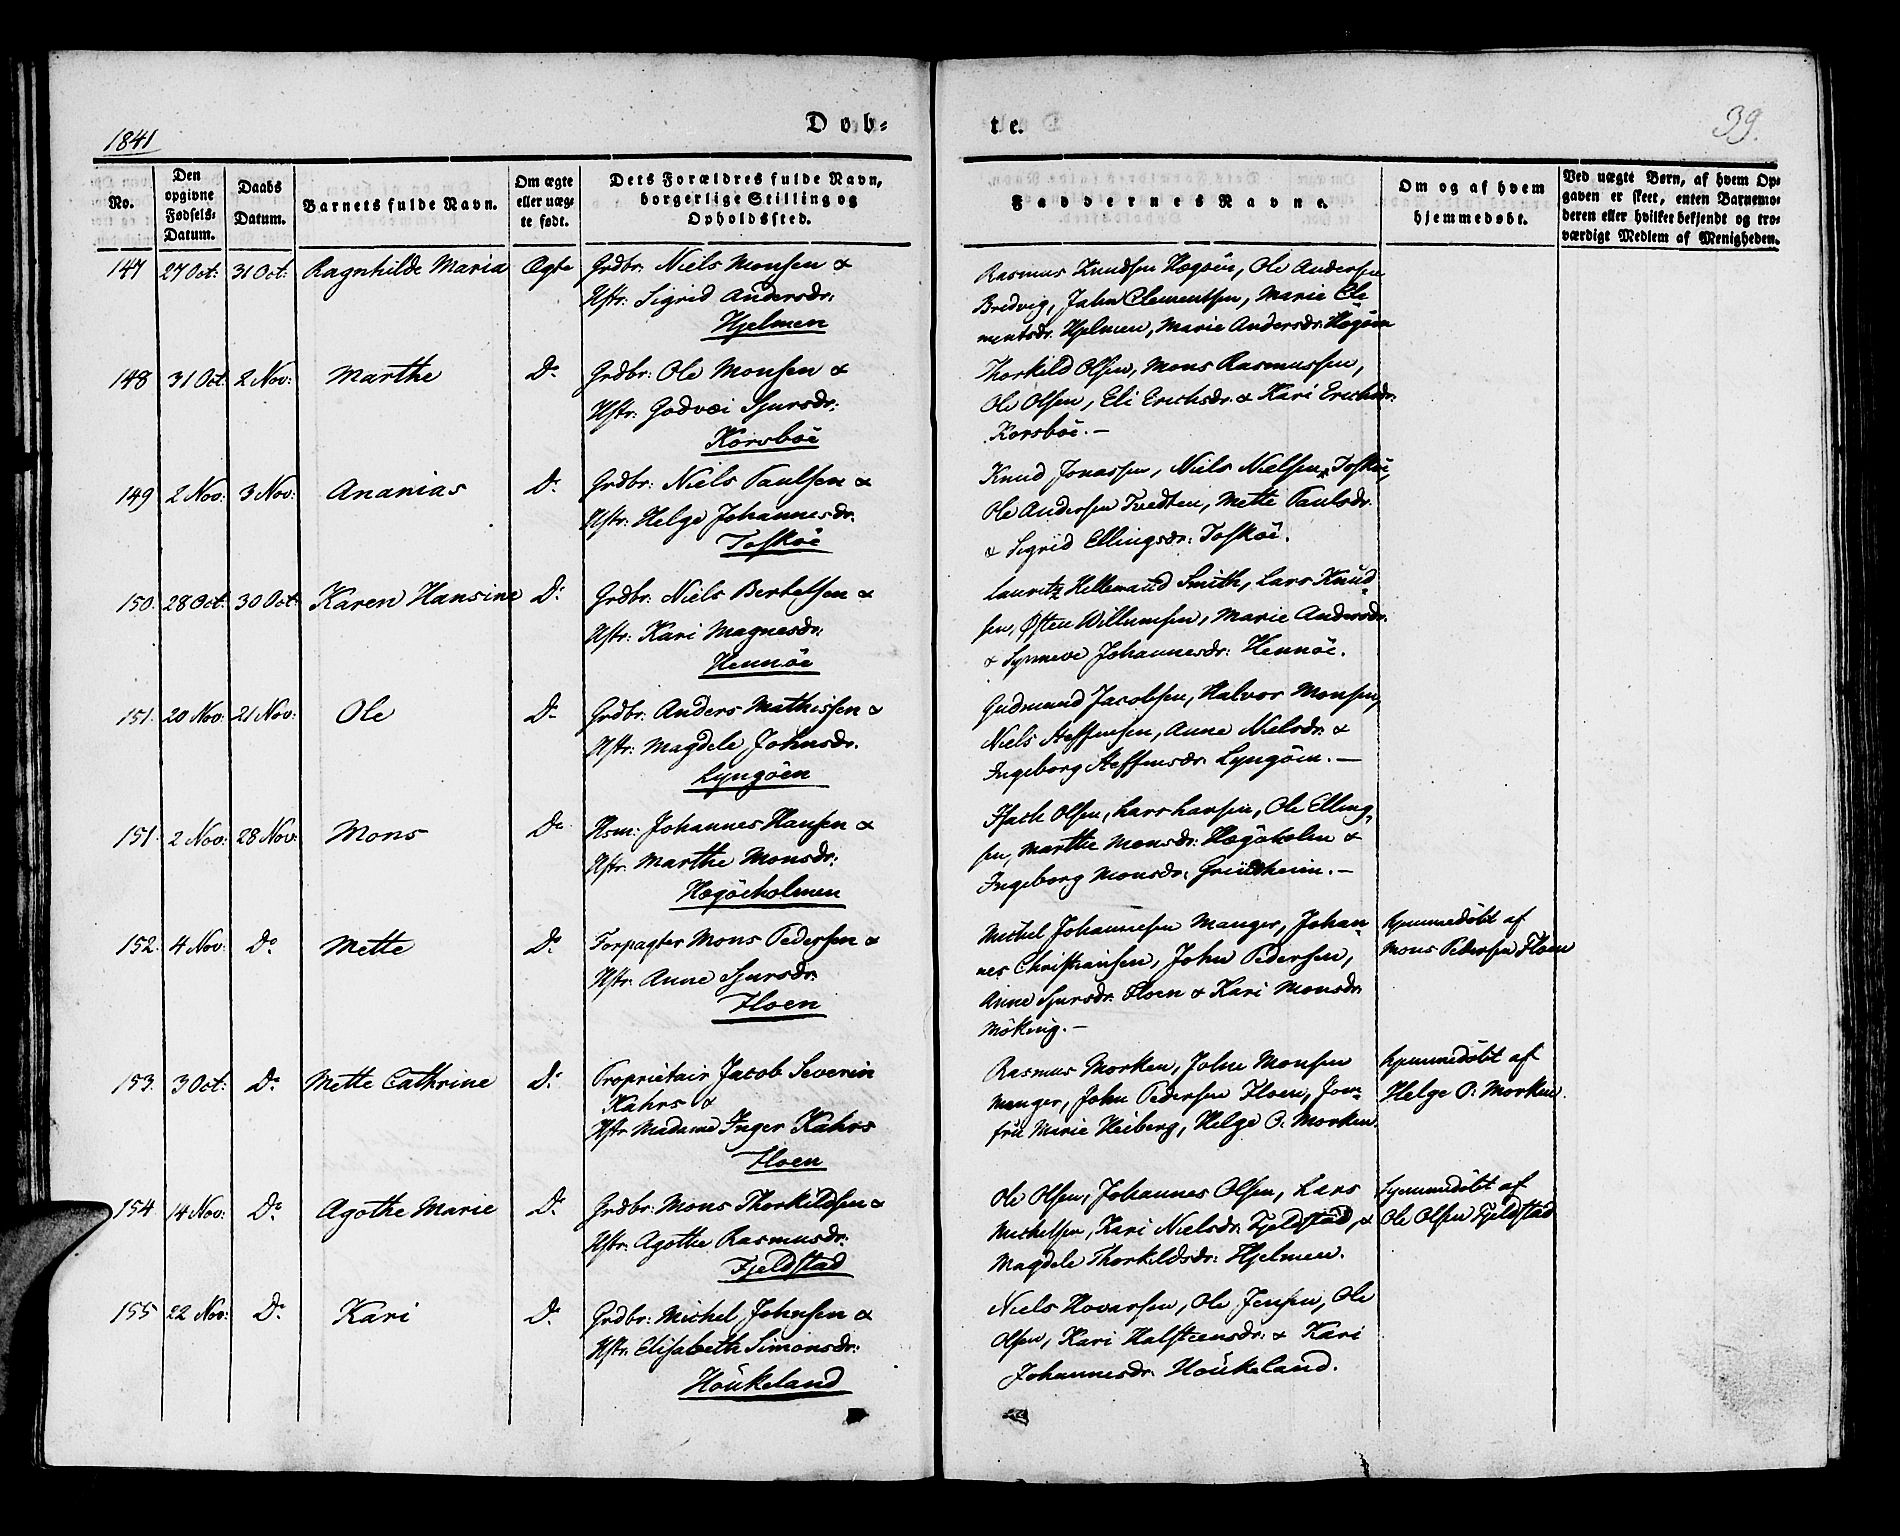 1841
Døb-
te.
39.
No.
Den opgivne Fødsels-Datum.
Daabs Datum.
Barnets fulde Navn.
Om ægte eller uæg-te født.
Dets Forældres fulde Navn, borgerlige Stilling og Opholdssted.
Faddernes Navne.
Om og af hvem hjemmedøbt.
Ved uægte Børn, af hvem Op-gaven er skeet, enten Barnemo-deren eller hvilket bekjendt og tro-værdigt Medlem af Menigheden.
147 27 Oct: 31 Oct: Ragnhilde Maria Ægte Grdbr: Niels Monsen &
Hstr: Sigrid Andersdr:
Hjelmen
Rasmus Knudsen Hægöin, Ole Andersen
Bredvig, John Clementsen, Marie Cle-
mentsdr. Hjelmen, Marie Andersdr. Hægöin
148 31 Oct: 2 Nov: Marthe Do Grdbr: Ole Monsen &
Hstr: Godvei Sjursdr:
Korsböe
Thorkild Olsen, Mons Rasmussen,
Ole Olsen, Eli Erichsdr. & Kari Erichsdr:
Korsböe. –
149 2 Nov: 3 Nov: Ananias Do Grdbr: Niels Paulsen &
Hstr: Helge Johannesdr.
Tosköe
Knud Jonassen, Niels Nielsen Tosköe,
Ole Andersen Tvedten, Mette Paulsdr.
& Sigrid Ellingsdr: Tosköe.
150. 28 Oct: 30 Oct: Karen Hansine Do Grdbr: Niels Berthelsen &
Hstr: Kari Magnesdr:
Hennöe
Lauritz Hellemand Smith, Lars Knud-
sen, Østen Willumsen, Marie Andersdr.
& Synneve Johannesdr: Hennöe.
151. 20 Nov: 21 Nov: Ole Do Grdbr: Anders Mathissen &
Hstr: Magdele Johnsdr.
Lyngöen
Gudmund Jacobsen, Halvor Monsen,
Niels Steffensen, Anne Nielsdr. &
Ingeborg Steffensdr. Lyngöen. –
151. 2 Nov: 28 Nov: Mons Do Hsm: Johannes Hansen &
Hstr. Marthe Monsdr:
Hægöeholmen
Isach Olsen, Lars Larsen, Ole Elling-
sen, Marthe Monsdr: Hægöholm &
Ingeborg Monsdr: Griidheim. –
152. 4 Nov: Do Mette Do Forpagter Mons Pedersen &
Hstr: Anne Sjursdr.
Floen
Michel Johannesen Manger, Johan-
nes Christiansen, John Pedersen,
Anne Sjursdr. Floen & Kari Monsdr.
Möking. –
hjemmedøbt af
Mons Pedersen Floen
153. 3 Oct: Do Mette Cathrine Do Proprietair Jacob Severin
Kahrs &
Hstr Madame Inger Kahrs
Floen
Rasmus Morken, John Monsen
Manger, John Pedersen Floen, Jom-
fru Marie Heiberg, Helge P. Morken.
hjemmedøbt af
Helge P: Morken.
154 14 Nov: Do Agothe Marie Do Grdbr: Mons Thorkildsen &
Hstr: Agothe Rasmusdr:
Fjeldstad
Ole Olsen, Johannes Olsen, Lars
Michelsen, Kari Nielsdr. Fjeldstad, &
Magdele Thorkildsdr: Hjelmen.
hjemmedøbt af
Ole Olsen Fjeldstad
155 22 Nov: Do Kari Do Grdbr: Michel Johnsen &
Hstr: Elisabeth Simonsdr:
Höukeland
Niels Havorsen, Ole Jensen, Ole
Olsen, Kari Halsteensdr: & Kari
Johannesdr. Höukeland.